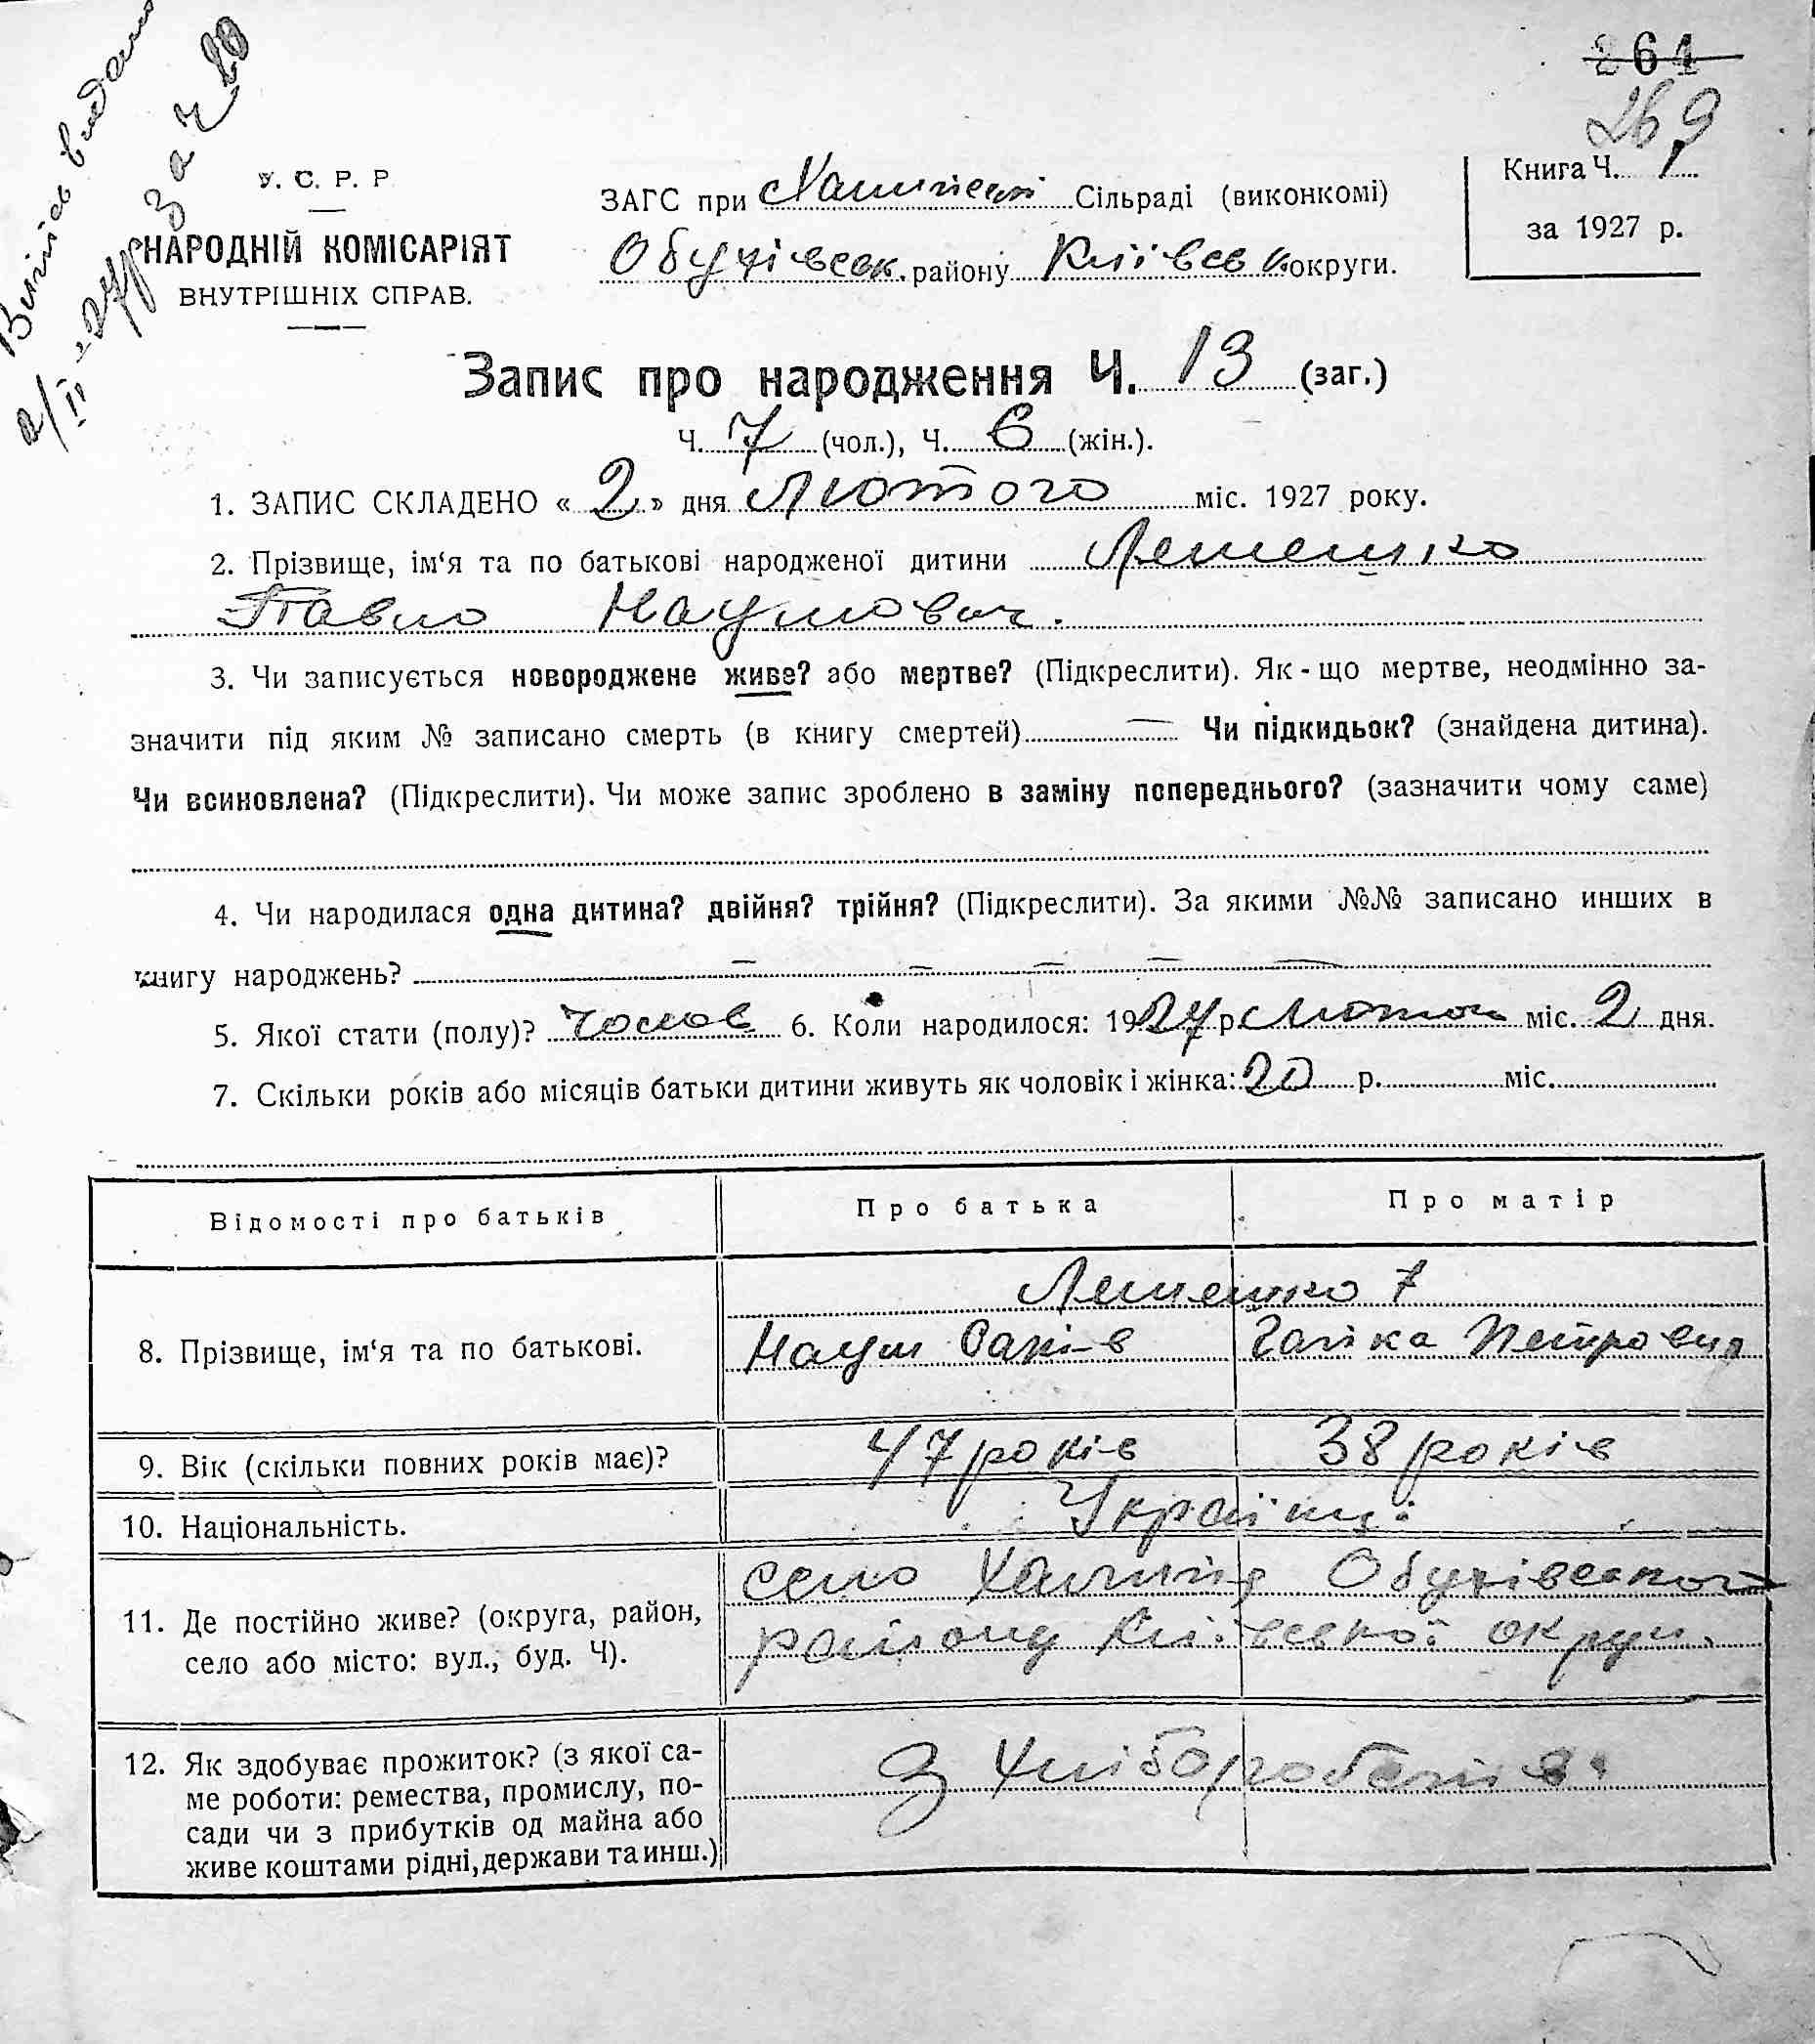 Витяг видано
2/II-27р за ч 20
264
269
У. С. Р. Р.
НАРОДНІЙ КОМІСАРІЯТ
ВНУТРІШНІХ СПРАВ.
ЗАГС при Халепській Сільраді (виконкомі)
Обухівськ. району Київськ. округи.
Книга Ч. 1
за 1927 р.
Запис про народження Ч. 13 (заг.)
Ч. 7 (чол.), Ч. 6 (жін.).
1. ЗАПИС СКЛАДЕНО « 2 » дня Лютого міс. 1927 року.
2. Прізвище, ім‘я та по батькові народженої дитини Лемешко
Павло Наумович.
3. Чи записується новороджене живе? або мертве? (Підкреслити). Як-що мертве, неодмінно за-
значити під яким № записано смерть (в книгу смертей) — Чи підкидьок? (знайдена дитина).
Чи всиновлена? (Підкреслити). Чи може запис зроблено в заміну попереднього? (зазначити чому саме)
4. Чи народилася одна дитина? двійня? трійня? (Підкреслити). За якими №№ записано инших в
книгу народжень? — — — — —
5. Якої стати (полу)? Чолов 6. Коли народилося: 1927 р. Лютого міс. 2 дня.
7. Скільки років або місяців батьки дитини живуть як чоловік і жінка: 20 р. міс.
Відомості про батьків Про батька Про матір
Лемешко
8. Прізвище, ім‘я та по батькові. Наум Саків Петровна
9. Вік (скільки повних років має)? 47 років 38 років
10. Національність. Українці
село Халепʼя Обухівського
11. Де постійно живе? (округа, район,
району Київської округи.
село або місто: вул., буд. Ч).
12. Як здобуває прожиток? (з якої са-
ме роботи: ремества, промислу, по-
З Хліборобства
сади чи з прибутків од майна або
живе коштами рідні, держави та инш.)